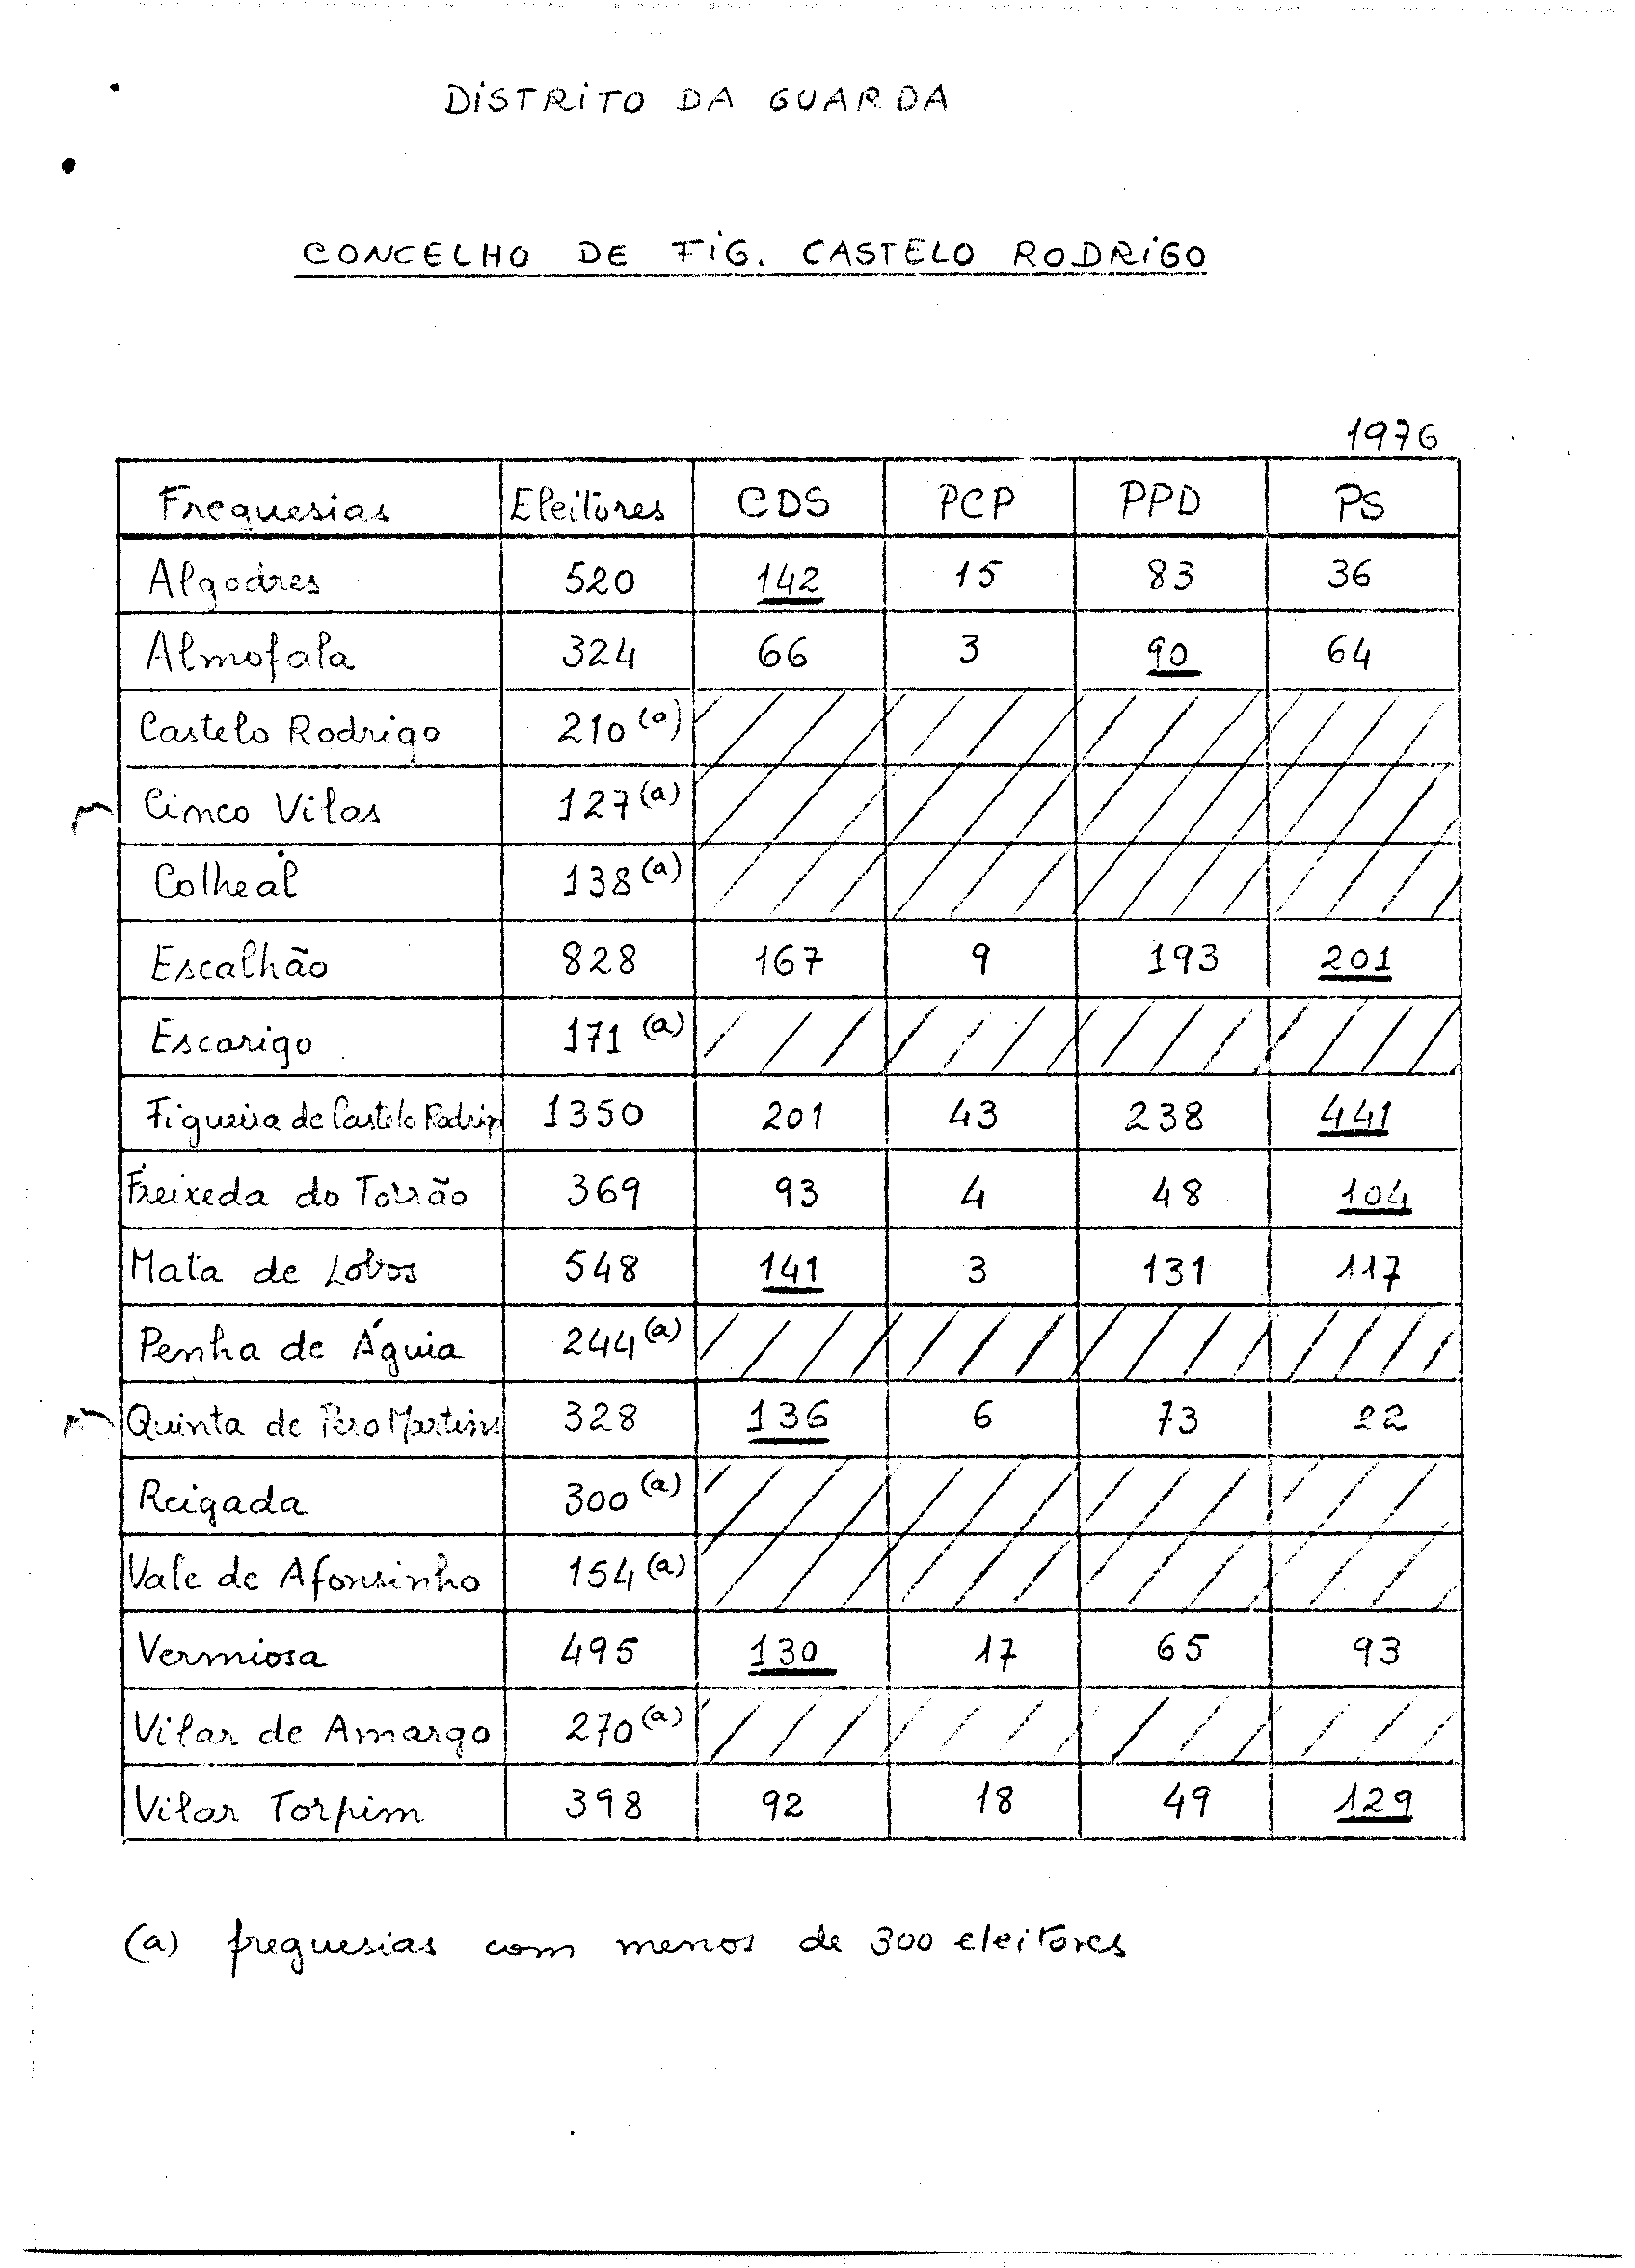 DISTRITO DA GUARDA
CONCELHO DE FIG. CASTELO RODRIGO
1976
Freguesias Eleitores CDS PCP PPD PS
Algodres 520 142 15 83 36
Almofala 324 66 3 90 64
Castelo Rodrigo 210 (a)
Cinco Vilas 127 (a)
Colheal 138 (a)
Escalhão 828 167 9 193 201
Escarigo 171 (a)
Figueira de Castelo Rodrigo 1350 201 43 238 441
Freixeda do Torrão 369 93 4 48 104
Mata de Lobos 548 141 3 131 117
Penha de Águia 244 (a)
Quinta de Pero Martins 328 136 6 73 22
Reigada 300 (a)
Vale de Afonsinho 154 (a)
Vermiosa 495 130 17 65 93
Vilar de Amargo 270 (a)
Vilar Torpim 398 92 18 49 129
(a) freguesias com menos de 300 eleitores